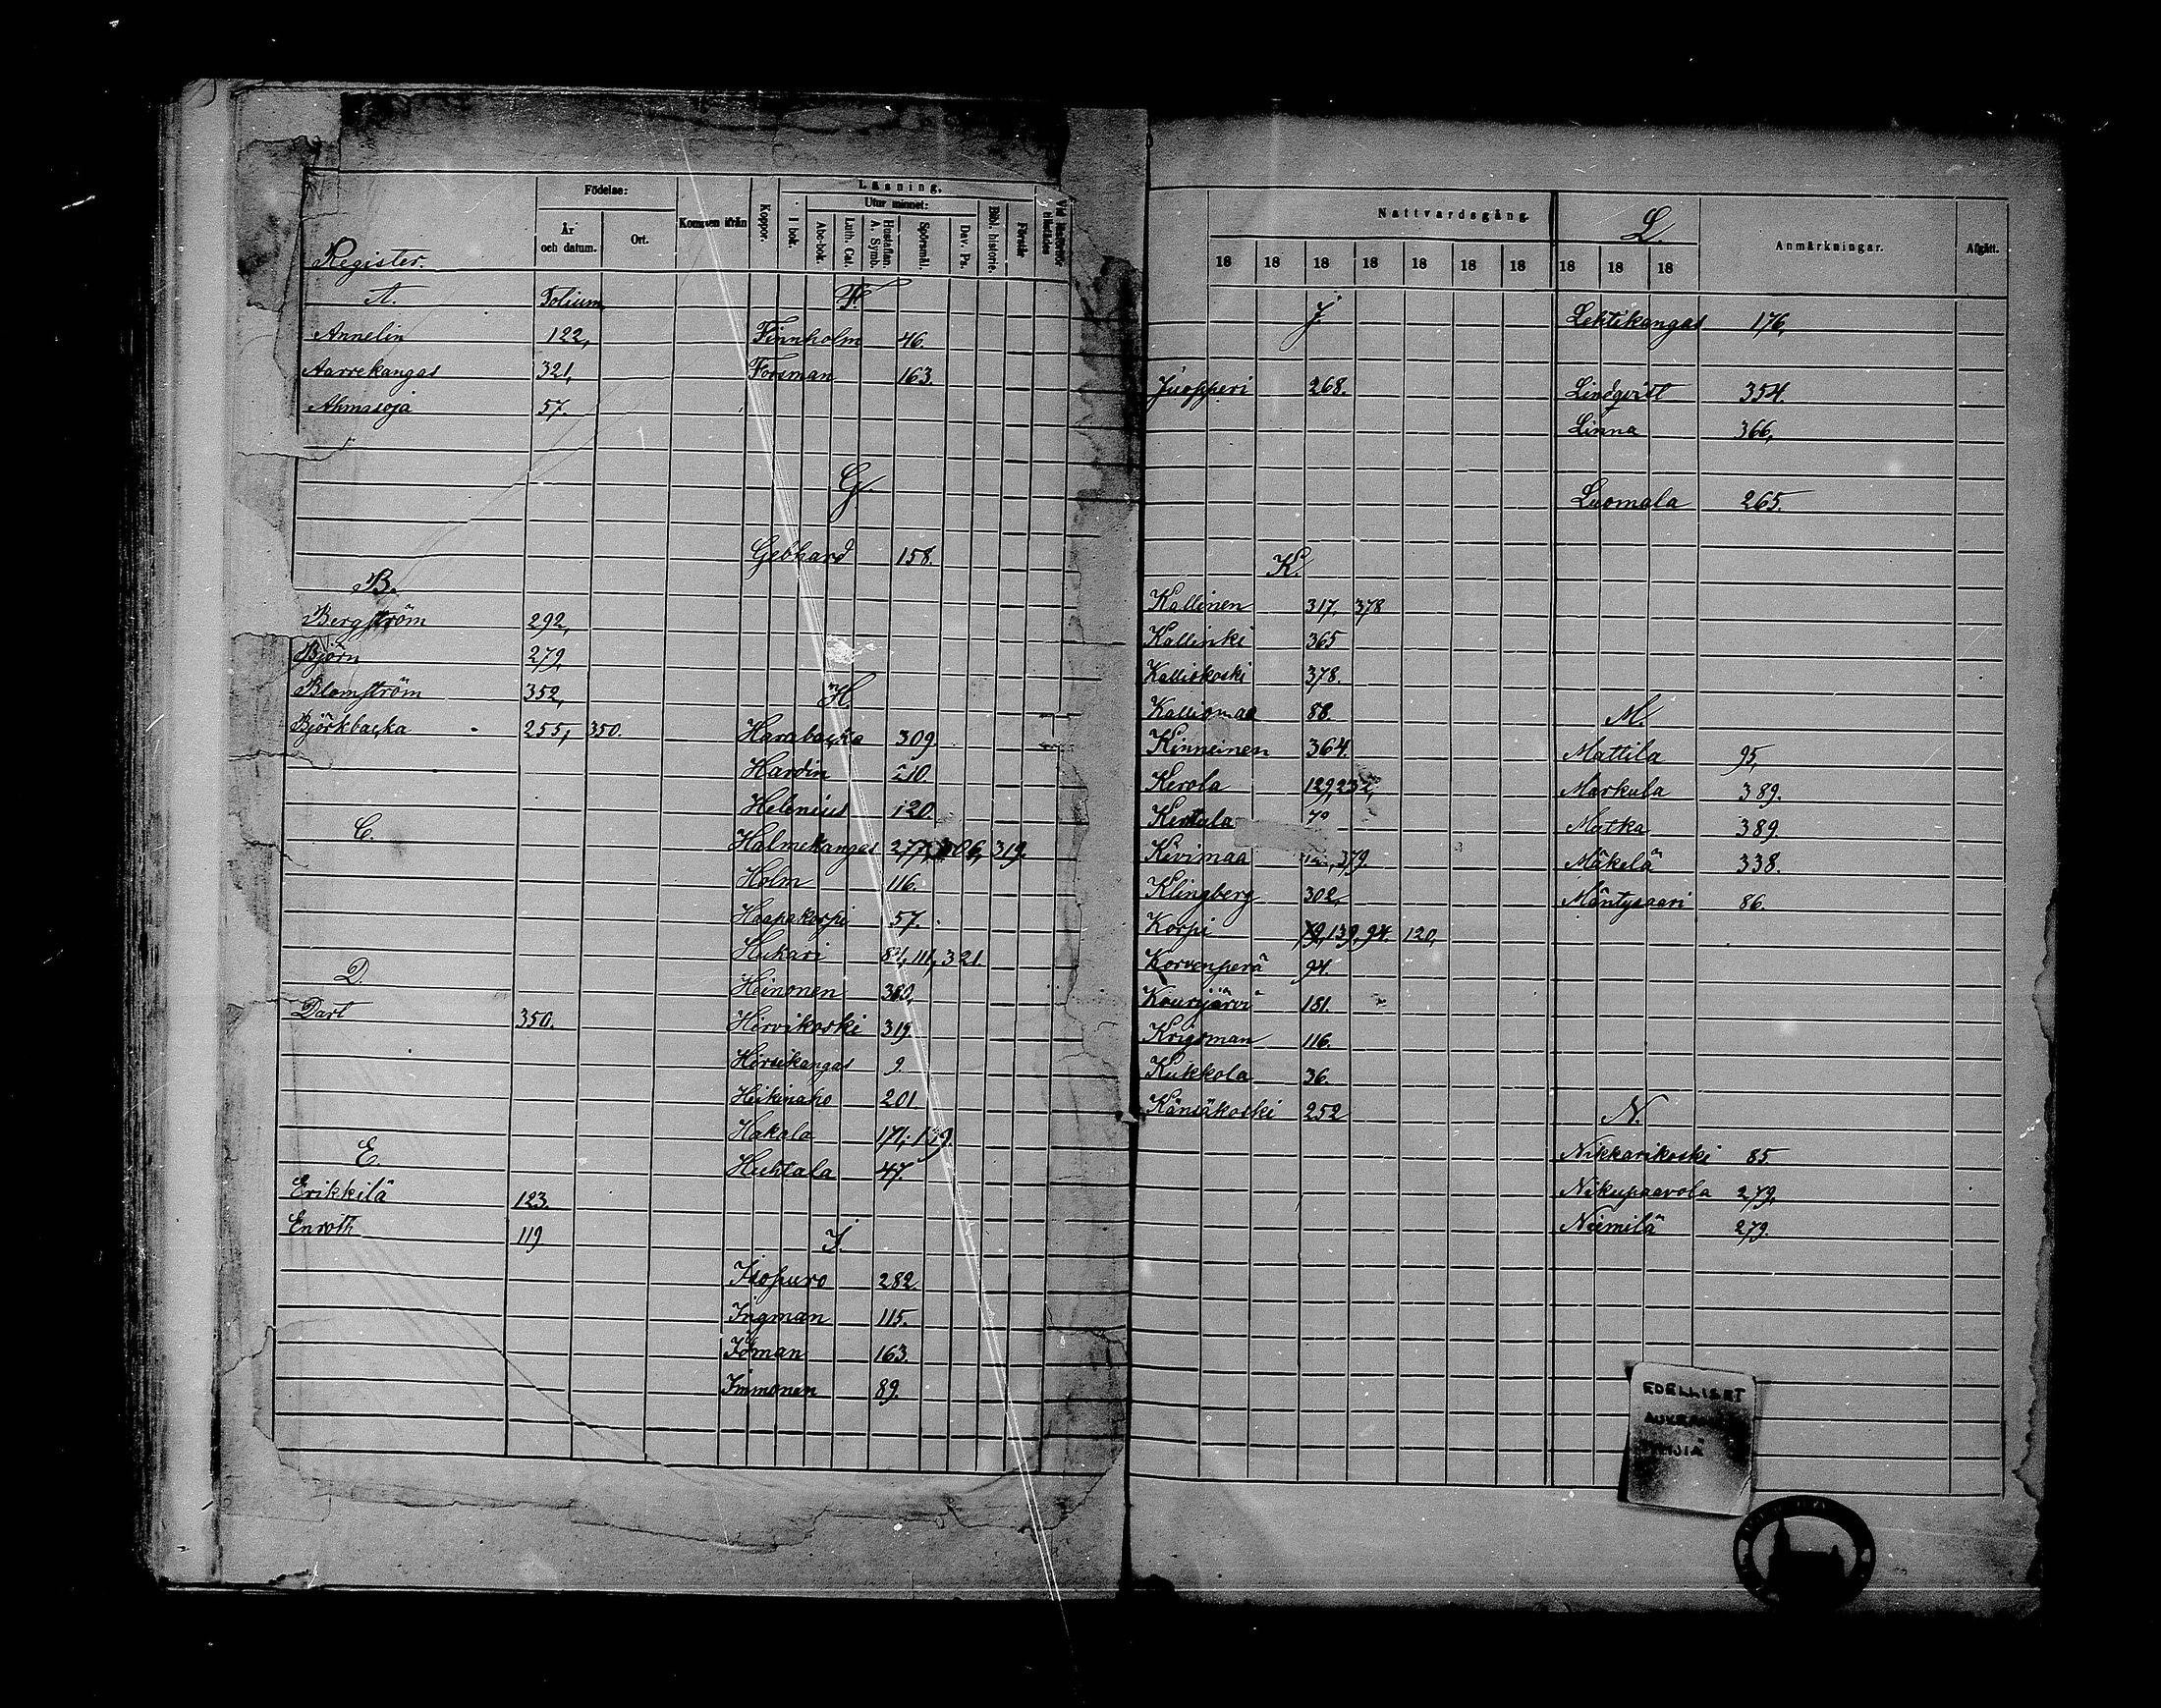 Register.
Födelse:
År och datum.
Ort.
Kommen ifrån
Koppor.
Läsning.
I bok.
Utur minnet:
Abc-bok.
Luth. Cat.
Hustaflan. A. Symb.
Spörsmål.
Dav. Ps.
Bibl. historie.
Förstår
A. Folium
Annelin 122,
Aarrekangas 321,
Ahmasoja 57.
B.
Bergström 292,
Björn 279,
Blomström 352,
Björkbacka 255, 350.
C.
D.
Dart 350.
E.
Erikkilä 123.
Enroth 119
F.
Finnholm 46.
Forsman 163.
G.
Gebhard 158.
H
Harabacka 309
Hardin 210.
Helenius 120.
Halmekangas 277, 306, 319.
Holm 116.
Haapakorpi 57.
Hukari 111, 321.
Heinonen 380,
Hirvikoski 319
Hirsikangas 9.
Heikinaho 201.
Hakala 171,
Huhtala 47.
I.
Isopuro 282.
Ingman 115.
Iöman 163.
Immonen 89.
Nattvardsgång.
18 18 18 18 18 18 18 18 18 18
Anmärkningar.
Afgått.
J.
Juopperi 268.
K.
Kallinen 317, 378
Kallinki 365
Kalliokoski 378.
Kalliomaa 88.
Kinneinen 364.
Kerola 129, 232,
Kertula
Kivimaa 379.
Klingberg 302,
Korpi 79, 139, 94. 120,
Korvenperä 94.
Kourijärvi 181.
Krigsman 116.
Kukkola 36.
Känsäkoski 252
L.
Lehtikangas 176,
Lindqvist 354.
Linna 366,
Luomala 265.
M.
Mattila 95,
Markula 389.
Matka 389.
Mäkelä 338.
Mäntysaari 86.
N.
Nikkarikoski 85.
Nikupaavola 279,
Niemilä 279.
EDELLISET